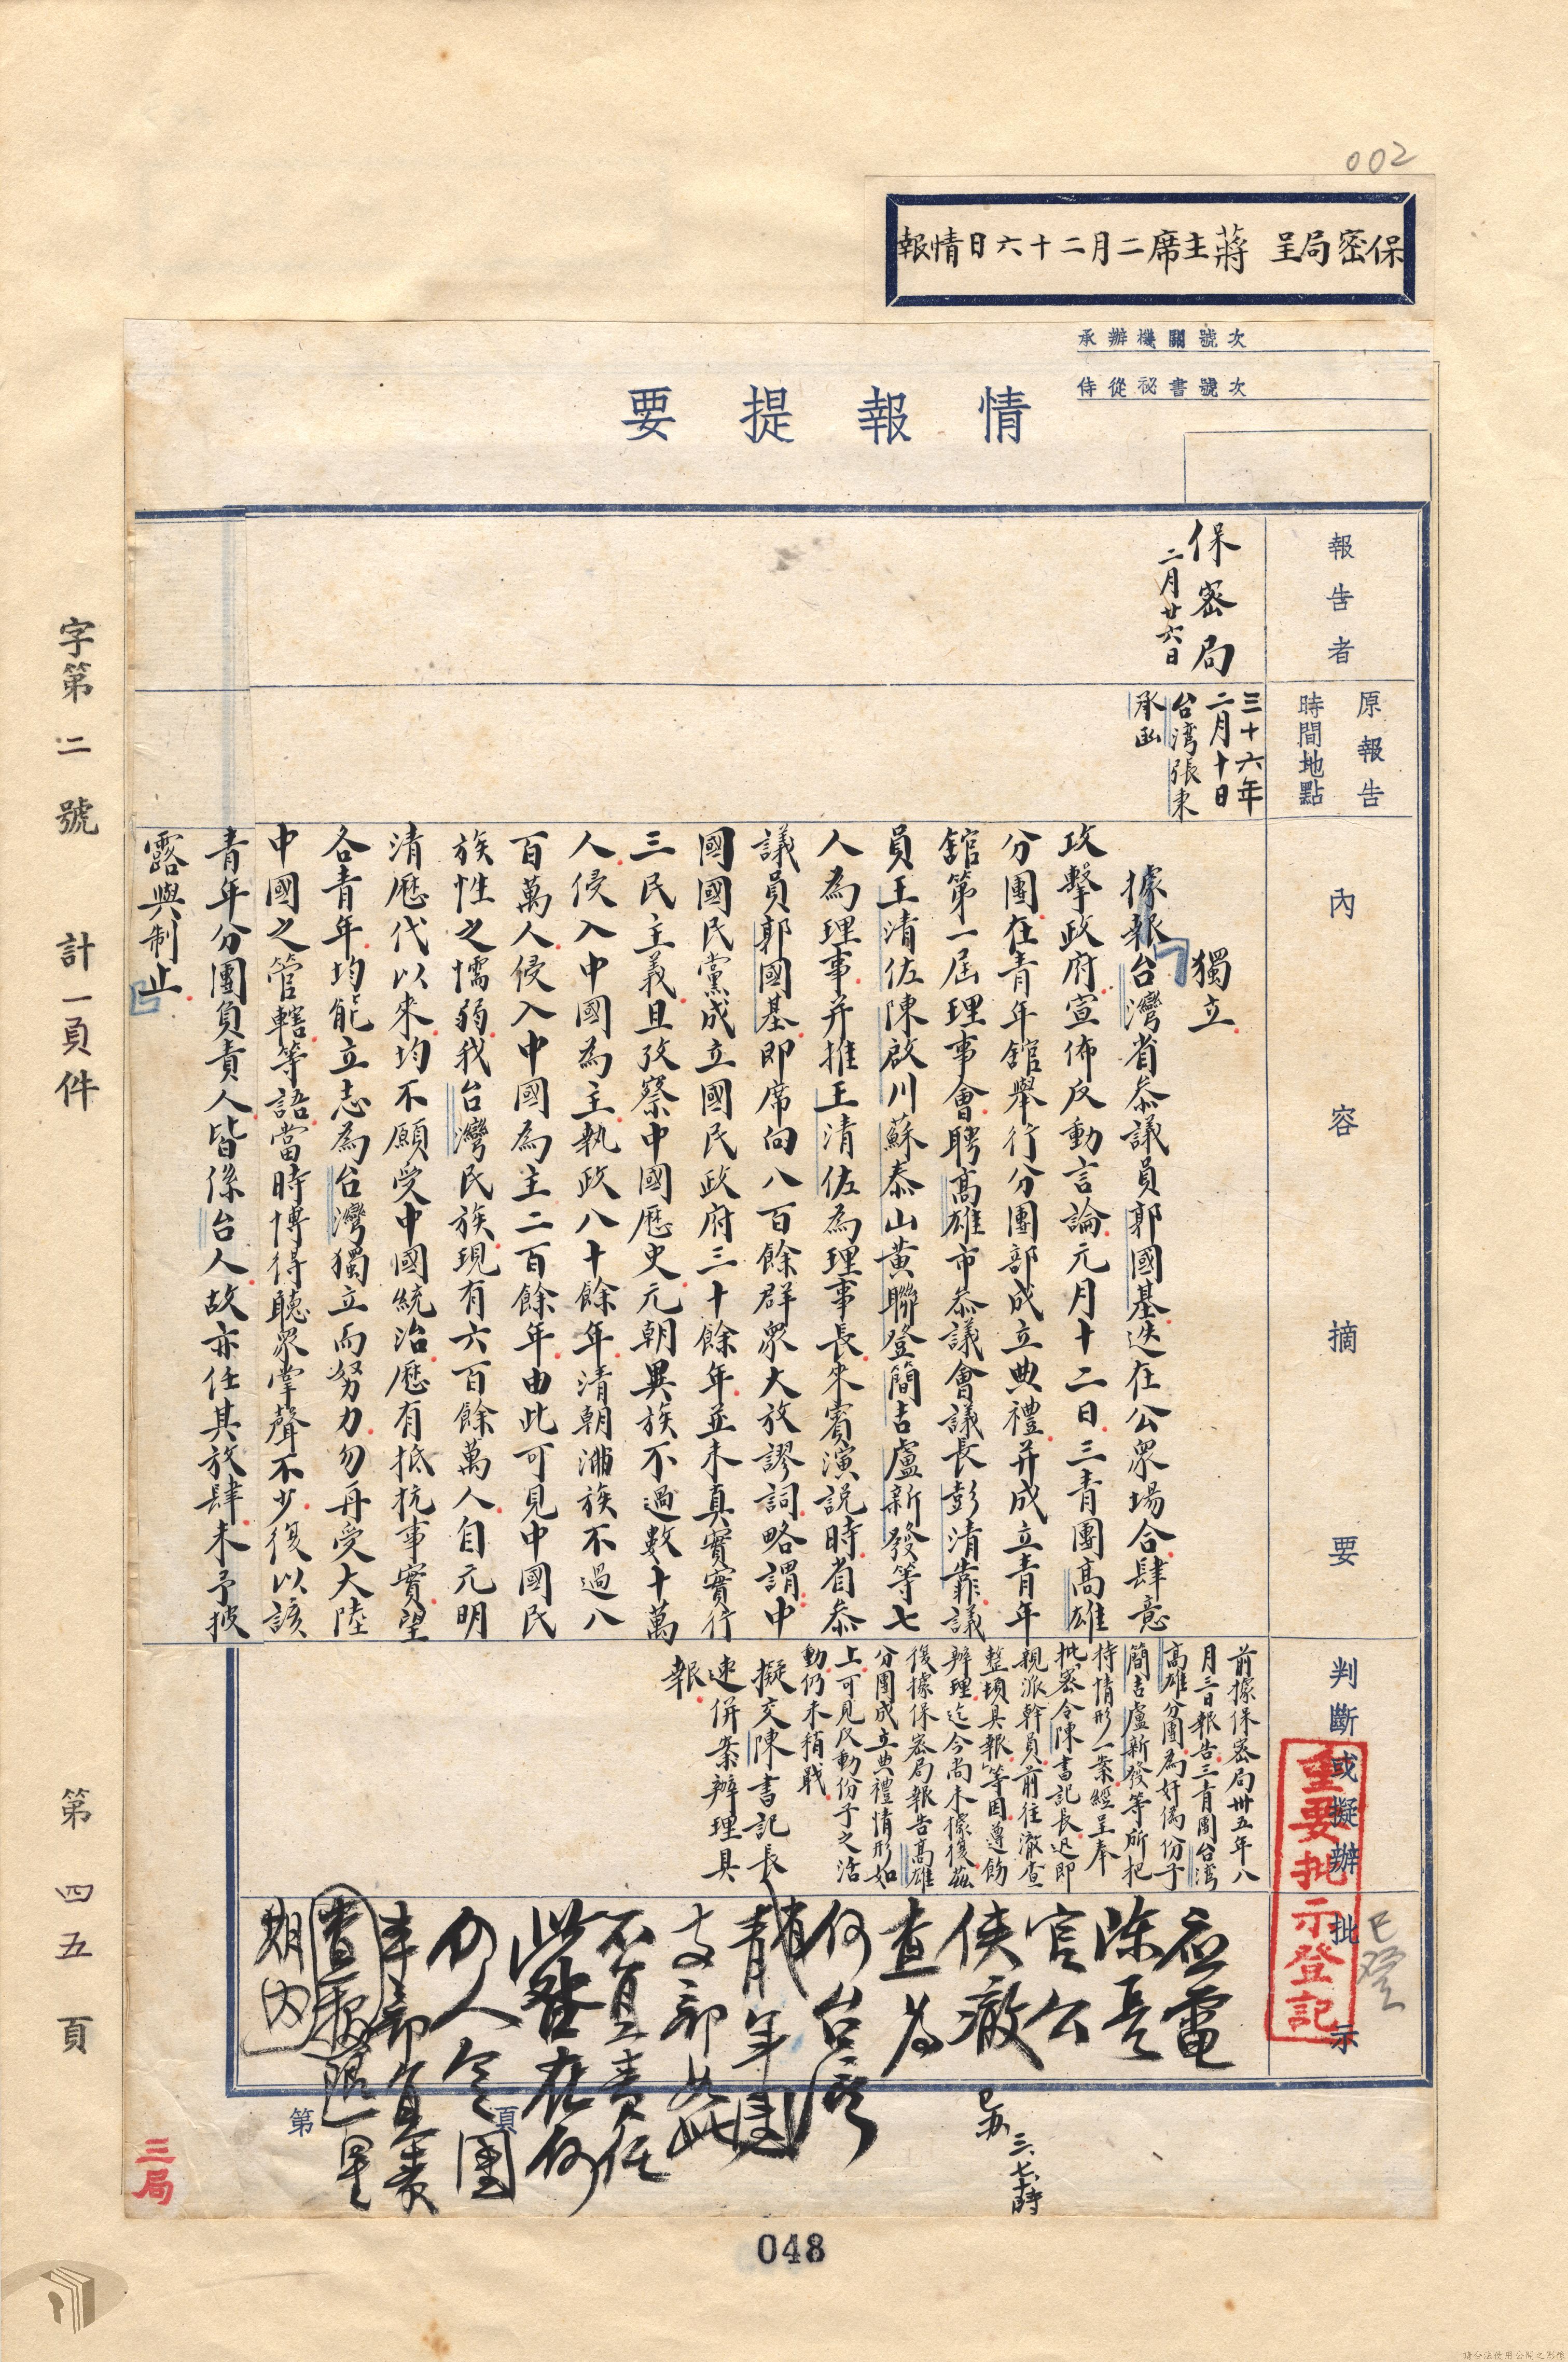 002
保密局呈　蔣主席二月二十六日情報
承辦機關號次
侍從祕書號次
情報提要
報告者
原報告
時間地點
內容摘要
判斷或擬辦
批示
重要批示登記
已登
保密局
二月廿六日
三十六年
二月十日
台灣張秉
承函
獨立
據報台灣省參議員郭國基迭在公眾場合肆意
攻擊政府宣佈反動言論元月十二日三青團高雄
分團在青年館舉行分團部成立典禮并成立青年
舘第一屆理事會聘高雄市參議會議長彭清靠議
員王清佐陳啟川蘇泰山黃聯登簡吉盧新發等七
人為理事并推王清佐為理事長來賓演說時省參
議員郭國基即席向八百餘群眾大放謬詞略謂中
國國民黨成立國民政府三十餘年並未真實實行
三民主義且攷察中國歷史元朝異族不過數十萬
人侵入中國為主執政八十餘年清朝滿族不過八
百萬人侵入中國為主二百餘年由此可見中國民
族性之懦弱我台灣民族現有六百餘萬人自元明
清歷代以來均不願受中國統治歷有抵抗事實望
各青年均能立志為台灣獨立而努力勿再受大陸
中國之管轄等語當時博得聽眾掌聲不少復以該
青年分團負責人皆係台人故亦任其放肆未予披
露與制止
前據保密局卅五年八
月三日報告三青團台灣
高雄分團為奸偽份子
簡吉盧新發等所把
持情形一案經呈奉
批密令陳書記長迅即
親派幹員前往澈查
整頓具報等因遵飭
辦理迄今尚未據復茲
後據保密局報告高雄
分團成立典禮情形如
上可見反動份子之活
動仍未稍戢
擬交陳書記長
速併案辦理具
報
應電
陳長
官公
俠澈
查為
何台灣
青年團
支部如此
不負責任
此咎在何
人令團
部負責
查報限一星
期內
三、七、十時
第　頁
三局
字第二號　計一頁件　第四五頁
048
請合法使用公開之影像